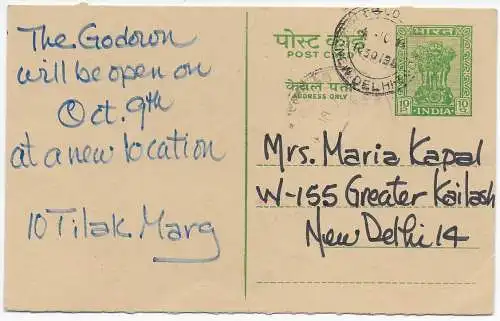 The Godown
will be open on
Oct. 9th
at a new location
10 Tilak Marg
पोस्ट कार्ड
POST CARD
केवल पता
ADDRESS ONLY
भारत
10 10
INDIA
NEW DELHI
Mrs. Maria Kapal
W-155 Greater Kailash
New Delhi 14